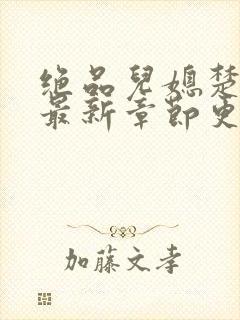 绝品儿媳楚
最新章节更
加藤文孝